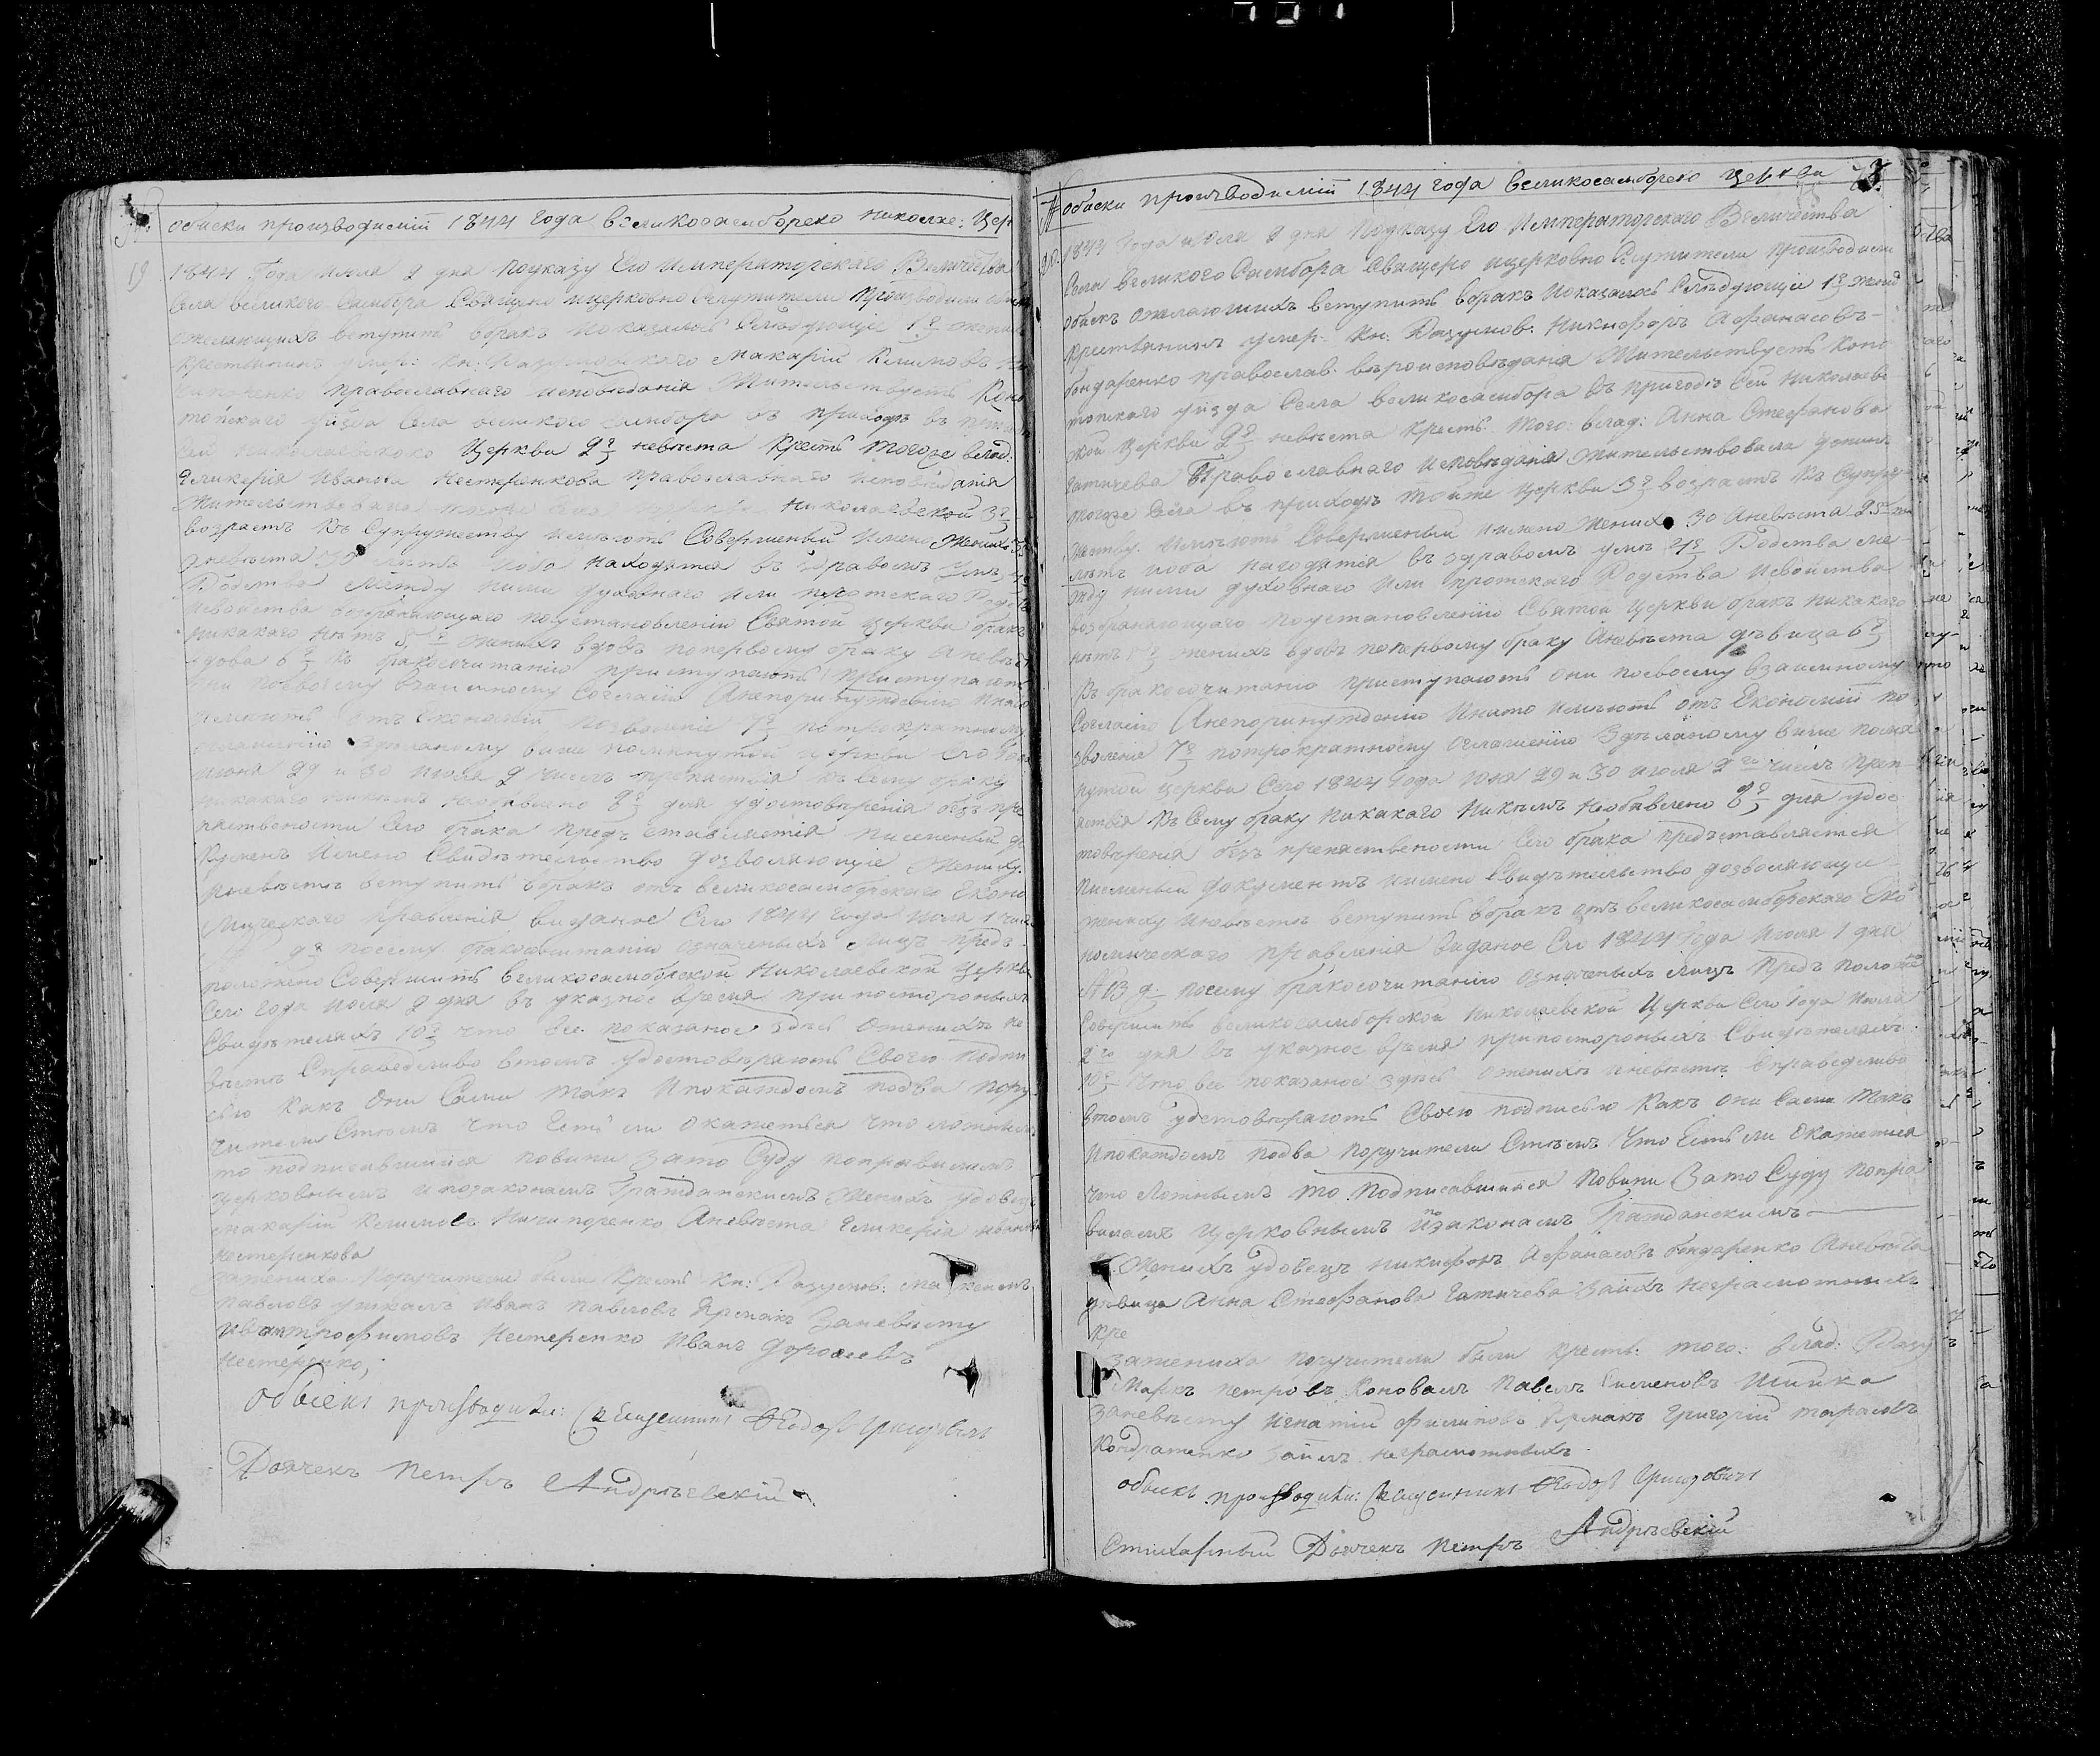 обиски произвoдиміи 1844 года великосамборско николае: Цер
19
1844 Года июля 2 дня поуказу Его императорскаго Величества
Села великого Самбора Священо ицерковно Служители Производили
ожелающихъ вступить вбракъ показалось Следующіе 1е жених
крестьянинъ умер: кн: Разумовского Макарій Климовъ
Ничипоренко православнаго исповѣданія Жительствуетъ Коно
топского уѣзда Села великого Самбора въ приходѣ
сей николаевской Церкви 2е невѣста Крестъ Тогоже влад:
Гликерія Иванова Нестеренкова православнаго исповѣданія
Жительствовала тогоже Села Николаевской 3е
возрастъ Къ Супружеству имѣютъ Совершеный имено Женихъ
Аневѣста 30 лѣтъ иоба находятся въ здравомъ умѣ 4е
Родства Между ними духовнаго или плотскаго Родства
исвойства возбраняющаго поустановленію Святой церкви бракъ
никакого нѣтъ 5е женихъ вдовъ попервому браку Аневѣста
вдова 6е Къ бракосочитанію приступаютъ приступаютъ
они посвоему взаимному Согласію Анепоринужденію Инато
имѣютъ отъ Економій позволеніе 7е потрократному
оглашенію Здѣланому више помянутой церкви сего Года
июня 29 и 30 июля 2 числъ препаствія къ сему браку
никакаго никѣмъ необявлено 8е для удостовѣренія безъ пре
паствености Сего брака предъставляется писменый до
кументъ Имено Свидѣтельство дозволяющіе Жениху
иневѣстѣ вступитъ вбракъ отъ великосамборского Еконо
мического правленія виданое Сего 1844 года июля 1 числ
9е посему бракосочитаніи означеныхъ лицъ предъ
положено Совершитъ великосамборской Николаевской Церкви
Сего Года июля 2 дня въ указное время припосторонныхъ
Свидѣтеляхъ 10е что все показаное здѣсь оженихѣ не
вѣстѣ Справедливо втомъ удостовѣряютъ Своею подпи
сью Какъ Они Сами Такъ Ипокаждомъ подва пору
чители Стѣмъ что Естьли окажется что ложнымъ
то подписавшійся повини зато Суду поправиламъ
церковнымъ ипозаконамъ Гражданскимъ Женихъ удовецъ
макарій Климовъ Ничипоренко Аневѣста Гликерія иванова
нестеренкова
зажениха Поручители были крестъ Кн: Разумов:
павловъ Иванъ павловъ Ярмакъ Заневѣсту
ивантрофимовъ Нестеренко Иванъ дорошевъ
Нестеренко,
Обыскъ производили: Священникъ Ѳеодоръ Григровичъ
Дьячекъ Петръ Андрѣевскій
Обиски произвoдиміи 1844 года великосамборско Церкви
20
1844 Года июля 2 дня Поуказу Его Императорскаго Величества
Села великого Самбора Священо ицерковно Служители Производили
обискъ ожелающихъ вступитъ вбракъ показалось Следующіе 1е жених
крестянинъ умер: Кн: Разумов: Никифоръ Афанасовъ
бондаренко православ: вѣроисповѣданія Жительствуетъ Коно
топского уѣзда Села великосамбора въ приходѣ Сей Николаев
ской церкви 2е невѣста Крестъ: того: влад: Анна Стефанова
Гатичева Православнаго исповѣданія жительствовала донинѣ
тогоже Села въ приходѣ тойже Церкви 3е возрастъ Къ Супру
жетву имѣютъ Совершеный имено Женихъ 30 Аневѣста 25
лѣтъ иоба находятся въ здравомъ умѣ 4е Родства ме
жду ними духовнаго или плотскаго Родства исвойства
возбраняющаго поустановленію Святой Церкви бракъ никакаго
нѣтъ 5е женихъ вдовъ попервому браку Аневѣста дѣвица 6е
Къ бракосочитанію приступаютъ они посвоему взаимному
Согласію Анепоринужденію Инато имѣютъ отъ Економій по
зволеніе 7е потрократному оглашенію Здѣланому више помя
нутой Церкви Сего 1844 Года юня 29 и 30 июля 2го числъ преп
яствія Къ Сему браку никакаго Никѣмъ Необявлено 8е для удос
товѣренія безъ препяствености Сего брака предъставляется
писменый документъ имено Свидѣтельство дозволяющіе
жениху иневѣстѣ вступитъ вбракъ отъ великосамборского Еко
номического правленія Виданое Сего 1844 Года июля 1 дня
№ 13 9е Посему бракосочитанію означеныхъ лицъ Предъ положено
Совершитъ великосамборской николаевской Церкви Сего Года июля
2го дня въ указное время припосторонныхъ Свидѣтеляхъ
10е Что все показаное здѣсь ожених иневѣстѣ Справедливо
втомъ удостовѣряютъ Своею подписью Какъ они Сами Такъ
Ипокаждомъ подва Поручители Стѣмъ Что Естьли Окажется
что Ложнымъ то Подписавшійся Повини Зато Суду попра
виламъ Церковнымъ ипозаконамъ Гражданскимъ
Женихъ удовецъ никифоръ Афанасовъ бондаренко Аневѣста
дѣвица Анна Стефанова Гатичева Заихъ неграмотныхъ
Кре
зажениха поручители были Крестъ: того: влад: Разу
Маркъ петровъ Коновалъ Павелъ Симеоновъ Шийка
Заневѣсту Игнатій филиповъ Ярмакъ Григорій тарасовъ
Кондратенко Заихъ неграмотныхъ
Обыскъ производили: Священникъ Ѳеодоръ Григровичъ
Стихарный Дьячекъ Петръ Андрѣевскій